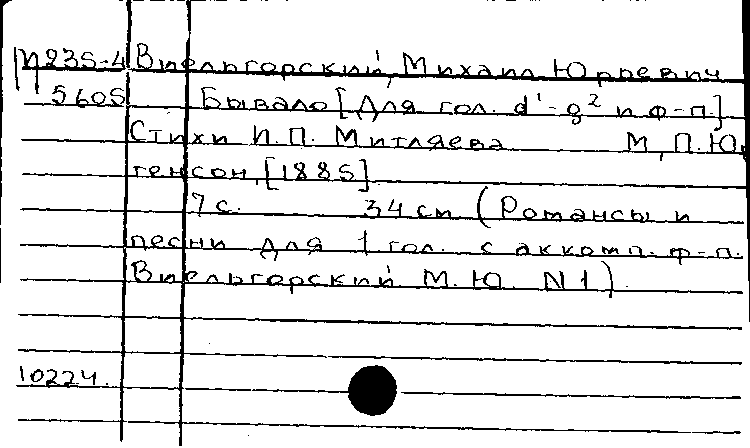 М235-4 Виельгорский, Михаил Юрьевич
5605 Бывало [Для гол. d¹-g² и ф-п.]
Стихи И.П. Митляева М, П.Юр
генсон, [1885]
7 с. 34 см (Романсы и
песни для 1 гол. с аккомп. ф-п.
Виельгорский М.Ю. N1)
10224.